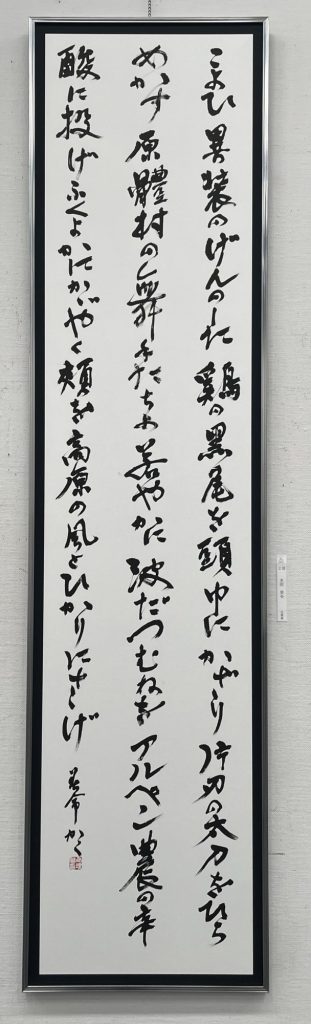 こよひ異装のげんのした鷄の黒尾を頭巾にかざり片刃の太刀をひら
めかす原體村の舞手たちよ若やかに波だつむねをアルペン農の辛
酸に投げふくよかにかゞやく頬を高原の風とひかりにさゝげ
かく